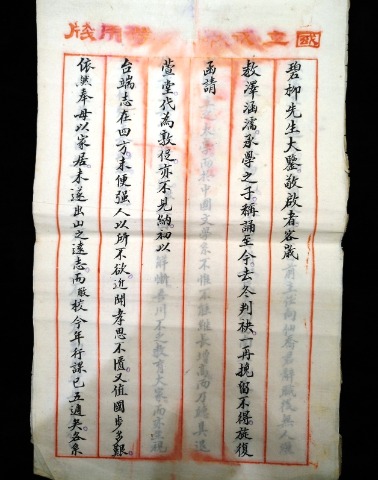 國立用牋
碧柳先生大鑒敬啟者客歲
教澤涵濡承學之子稱誦至今去冬判袂一再挽留不得旋復
函請
萱堂代為敦促亦不見納初以
台端志在四方未便强人以所不欲近聞孝思不匱又值國步多艱
依然奉母以家居未遂出山之遠志而敝校今年行課已五週矣各系